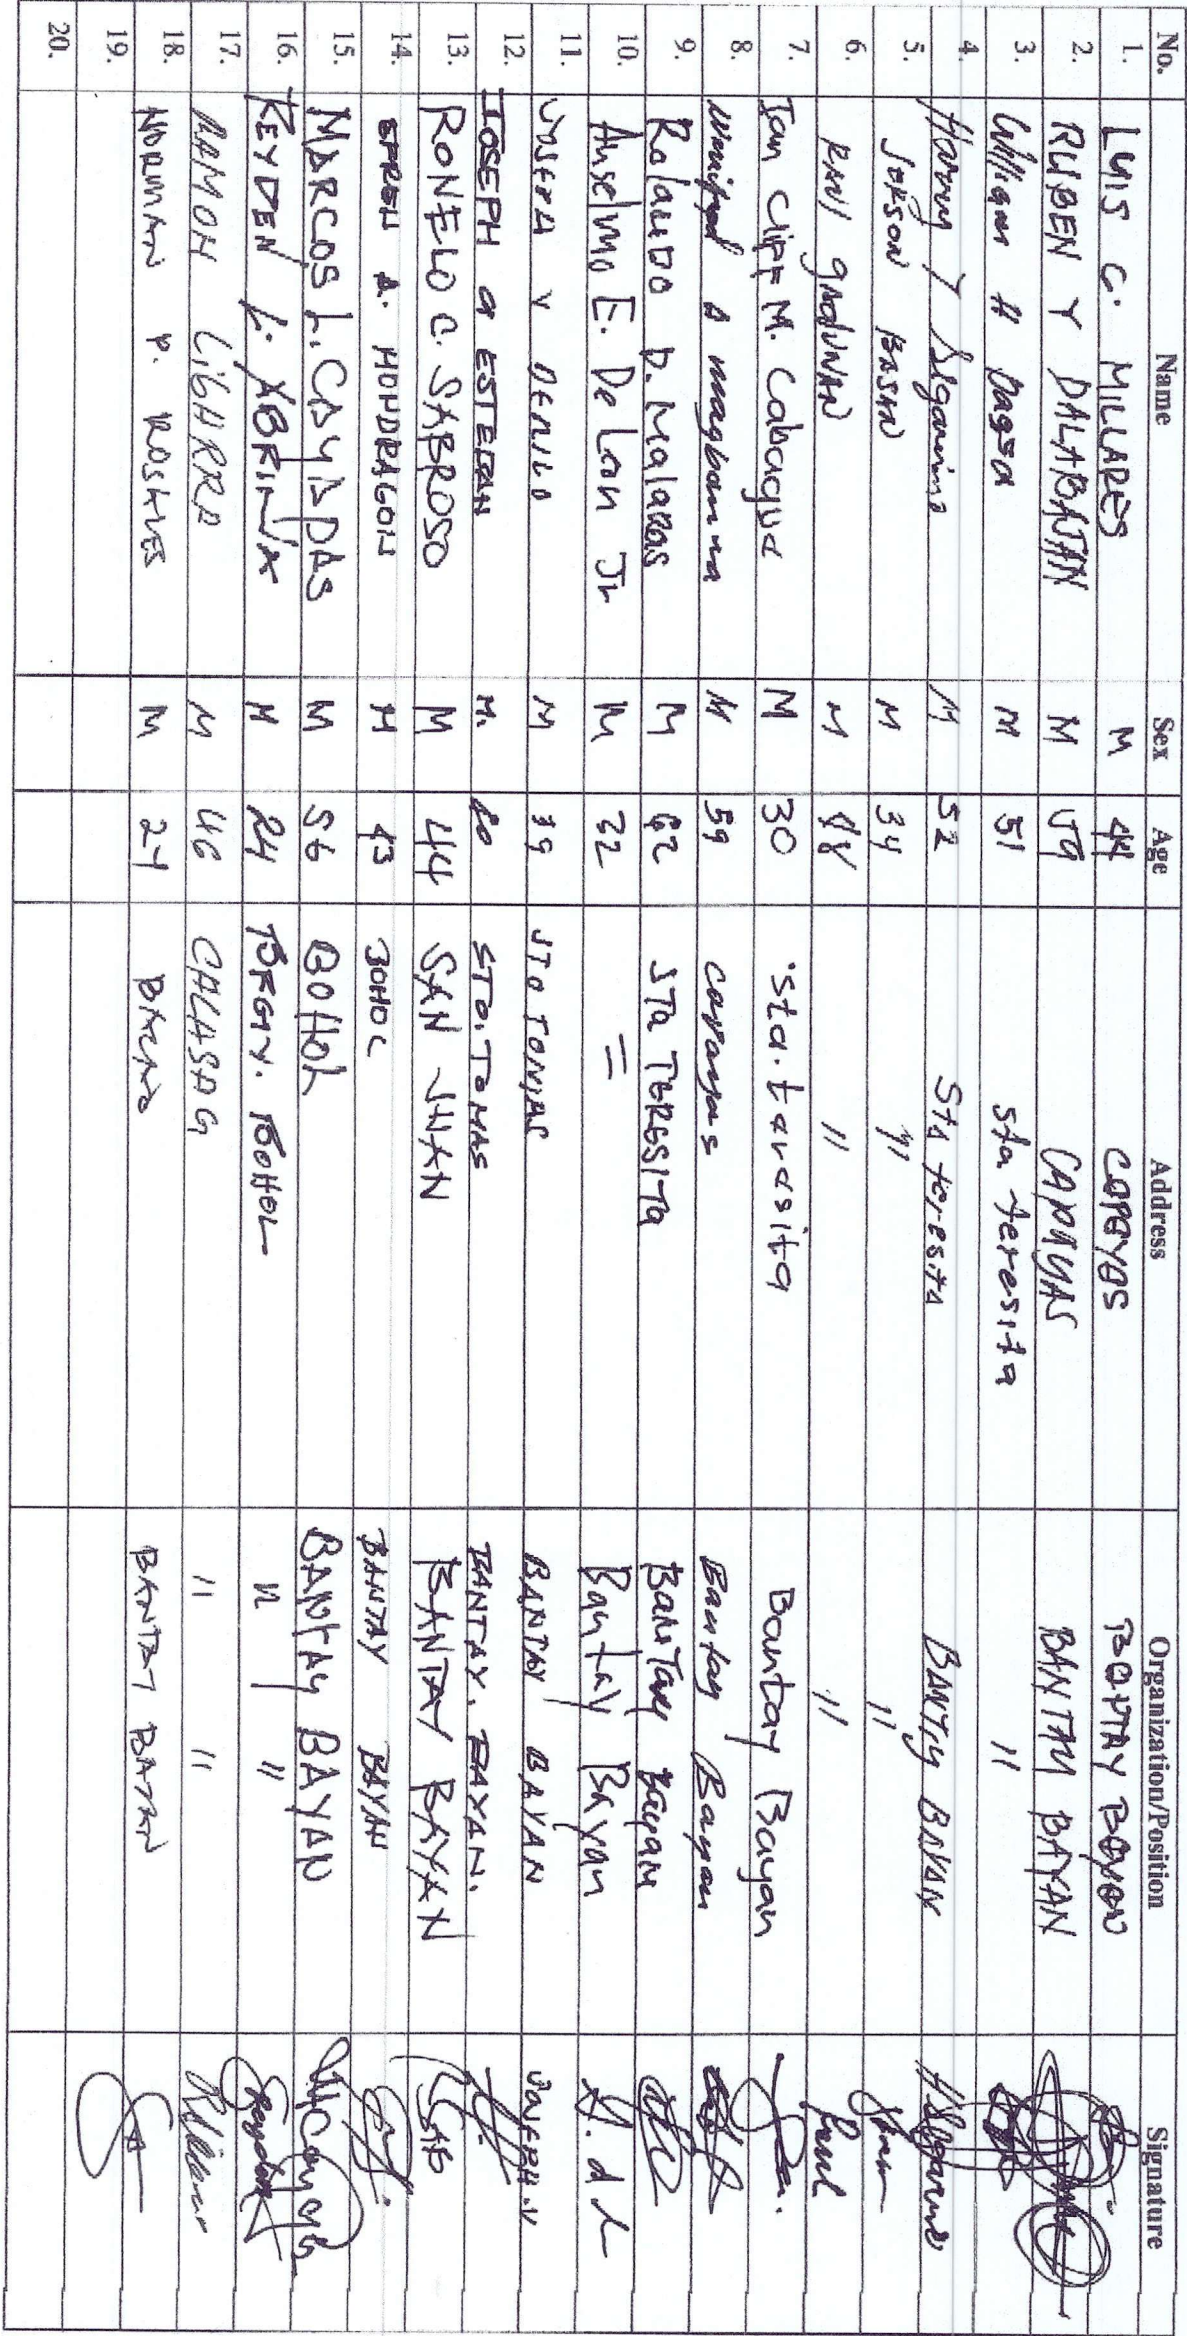 No. Name Sex Age Address Organization/Position Signature
1. LUIS C. MILLARES M 44 COPOYOS BONTAY BOYON
2. RUBEN Y DALABAJAN M 59 CAPAYAS BANTAY BAYAN
3. William H Dagsa M 51 sta teresita 11 11
4. Harvey Y Segarino M 52 Sta teresita BANTAY BAYAN
5. JOKSON BASAN M 34 11 11
6. RAUL M 11 11 Raul
7. Ian Cliff M. Cabague M 30 Sta. taresita Bantay Bayan
8. M 59 Bantay Bayan
9. Rolando D. Malabas M 42 STa TERESITA BanTay Bayan
10. Anselmo E. De Leon Jr M 32 = Bantay Bayan A. d L
11. JOSEPH V M 39 STO TOMAS BANTAY BAYAN JOSEPH.V
12. JOSEPH ESTEBAN M. STO. TOMAS BANTAY. BAYAN.
13. RONELO C. SABROSO M 44 SAN JUAN BANTAY BAYAN
14. EFREN D. MONDRAGON M 43 BOHOL BANTAY BAYAN
15. MARCOS L. CAYABDAS M 56 BOHOL BANTAY BAYAN
16. REYDEN L. ABRINA M 24 BRGY. BOHOL 11 11
17. RAMON LIGARRA M 46 CALASAG 11 11
18. NORMAN P. ROSALES M 24 BANTAY BAYAN
19.
20.